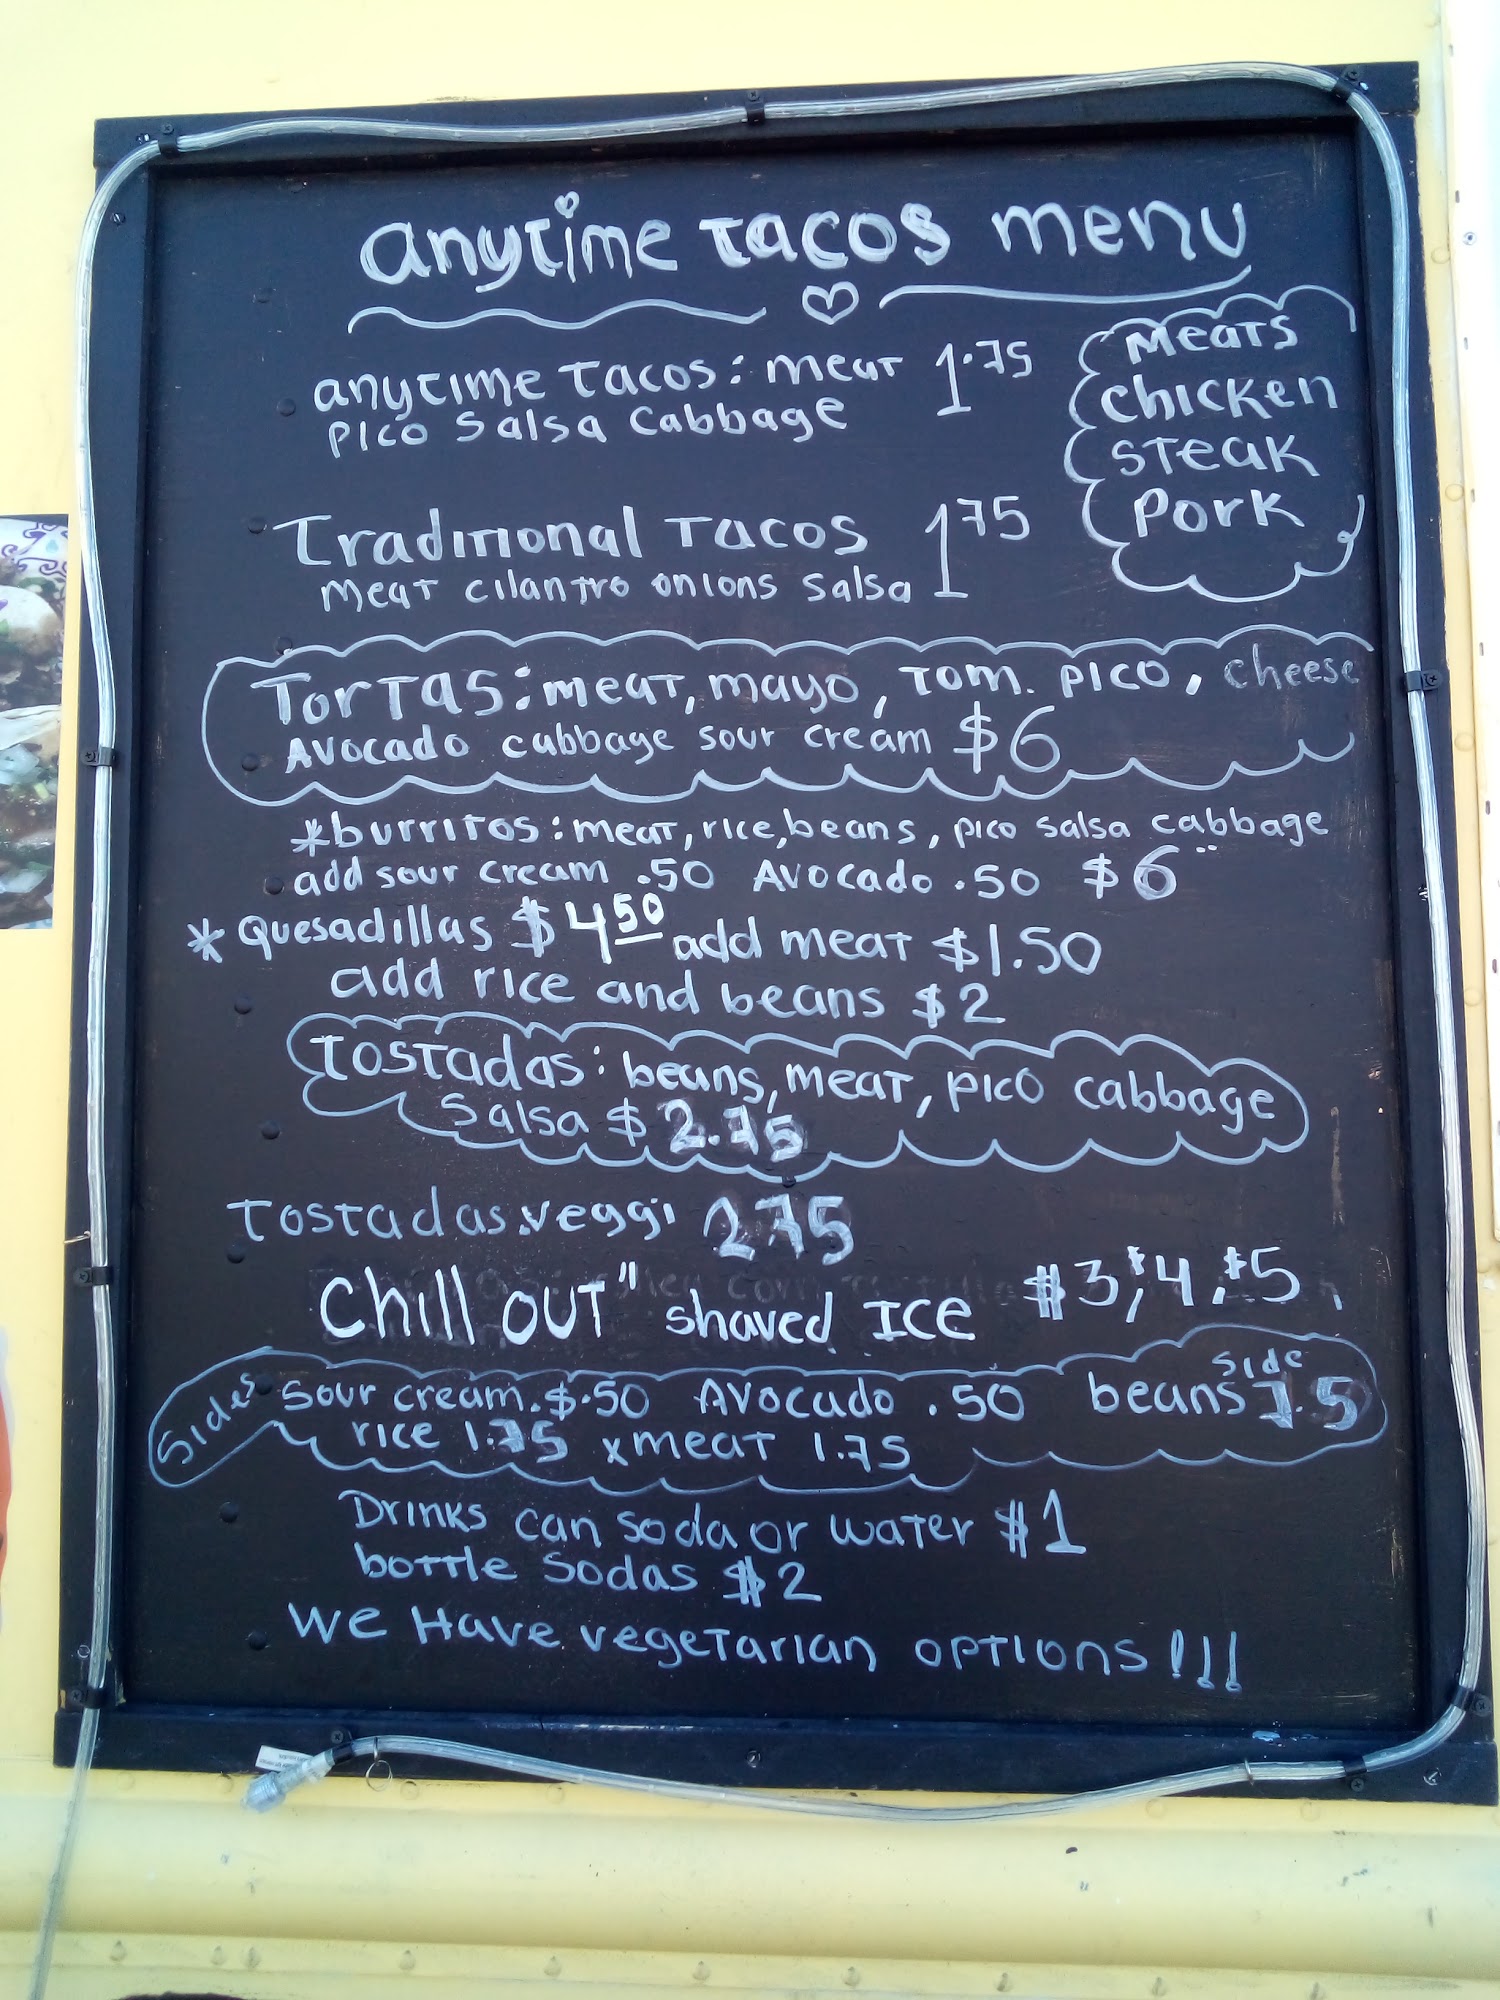 anytime tacos menu
anytime tacos: meat 1.75
pico salsa cabbage
Meats
chicken
steak
pork
Traditional tacos 1 75
meat cilantro onions salsa
Tortas: meat, mayo, tom. pico, cheese
Avocado cabbage sour cream $6
*burritos: meat, rice, beans, pico salsa cabbage
add sour cream .50 Avocado .50 $6
* Quesadillas $4 50 add meat $1.50
add rice and beans $2
Tostadas: beans, meat, pico cabbage
salsa $2.75
Tostadas.veggi 2 75
Chill OUT" shaved ICE $3, $4, $5
Sides
sour cream.$.50 Avocado .50 beans side
rice 1.75 x meat 1.75
Drinks can soda or water $1
bottle sodas $2
We Have vegetarian options!!!